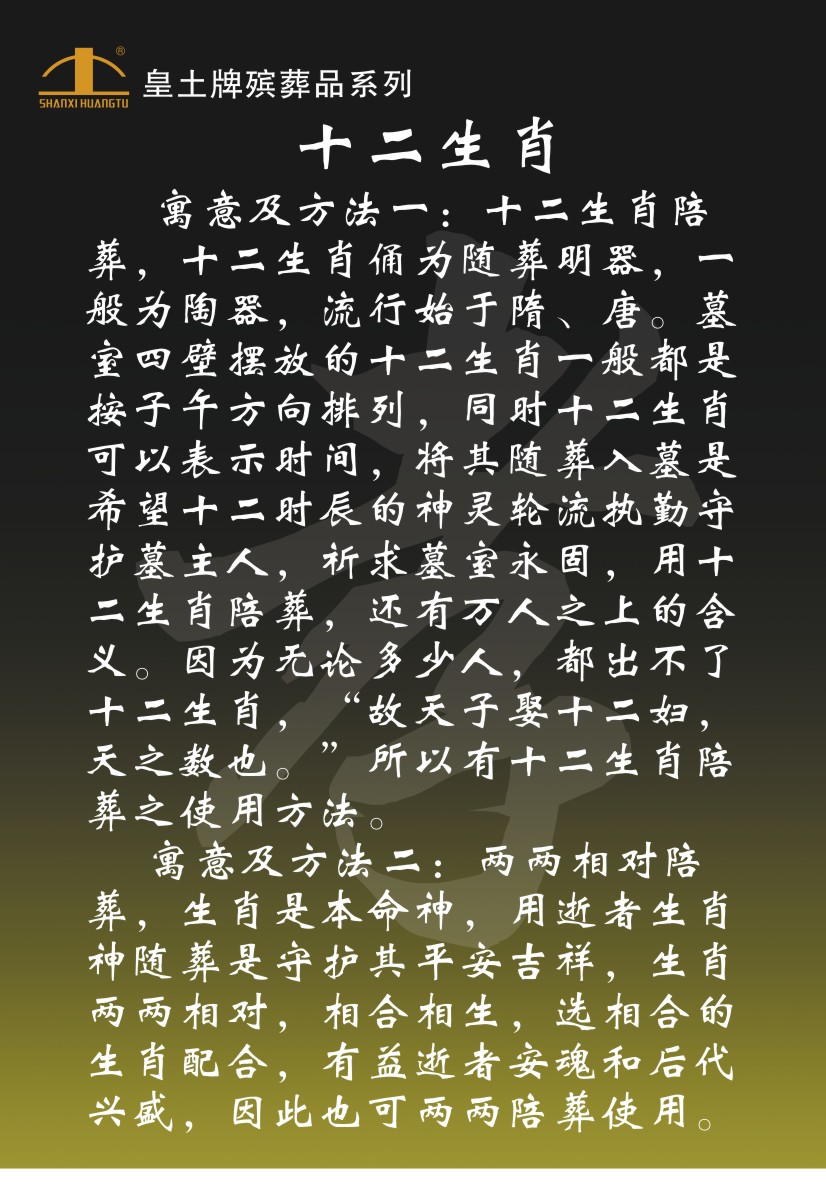 ®
SHANXI HUANGTU
皇土牌殡葬品系列
十二生肖
寓意及方法一：十二生肖陪
葬，十二生肖俑为随葬明器，一
般为陶器，流行始于隋、唐。墓
室四壁摆放的十二生肖一般都是
按子午方向排列，同时十二生肖
可以表示时间，将其随葬入墓是
希望十二时辰的神灵轮流执勤守
护墓主人，祈求墓室永固，用十
二生肖陪葬，还有万人之上的含
义。因为无论多少人，都出不了
十二生肖，“故天子娶十二妇，
天之数也。”所以有十二生肖陪
葬之使用方法。
寓意及方法二：两两相对陪
葬，生肖是本命神，用逝者生肖
神随葬是守护其平安吉祥，生肖
两两相对，相合相生，选相合的
生肖配合，有益逝者安魂和后代
兴盛，因此也可两两陪葬使用。
孝